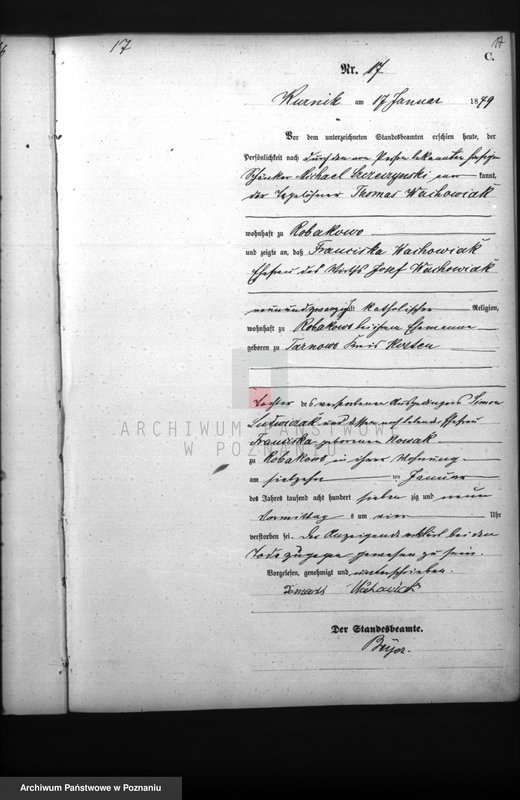 17
17
C.
Nr. 17
Kurnik am 17 Januar 1879
Vor dem unterzeichneten Standesbeamten erschien heute, der
Persönlichkeit nach durch den von Person bekannten hiesigen
Schänker Michael Szczezynski aner kannt,
der Tagelöhner Thomas Wachowiak
wohnhaft zu Robakowo
und zeigte an, daß Franciska Wachowiak
Ehefrau des Wirths Josef Wachowiak
neunundzwanzig alt katholischer Religion,
wohnhaft zu Robakowo bei ihrem Ehemanne
geboren zu Tarnowo Kreis
Tochter des verstorbenen Auszüglers Simon
und dessen noch lebende Ehefrau
Franciska geborenen Nowak
zu Robakowo in ihrer Wohnung
am siebzehn ten Januar
des Jahres tausend acht hundert sieben zig und neun
Vormittag s um vier Uhr
verstorben sei. Der Anzeigende erklärt bei dem
Tode zugegen gewesen zu sein.
Vorgelesen, genehmigt und unterschrieben.
Tomasz Wachowiak
Der Standesbeamte.
ARCHIWUM PAŃSTWOWE
W POZNANIU
Archiwum Państwowe w Poznaniu